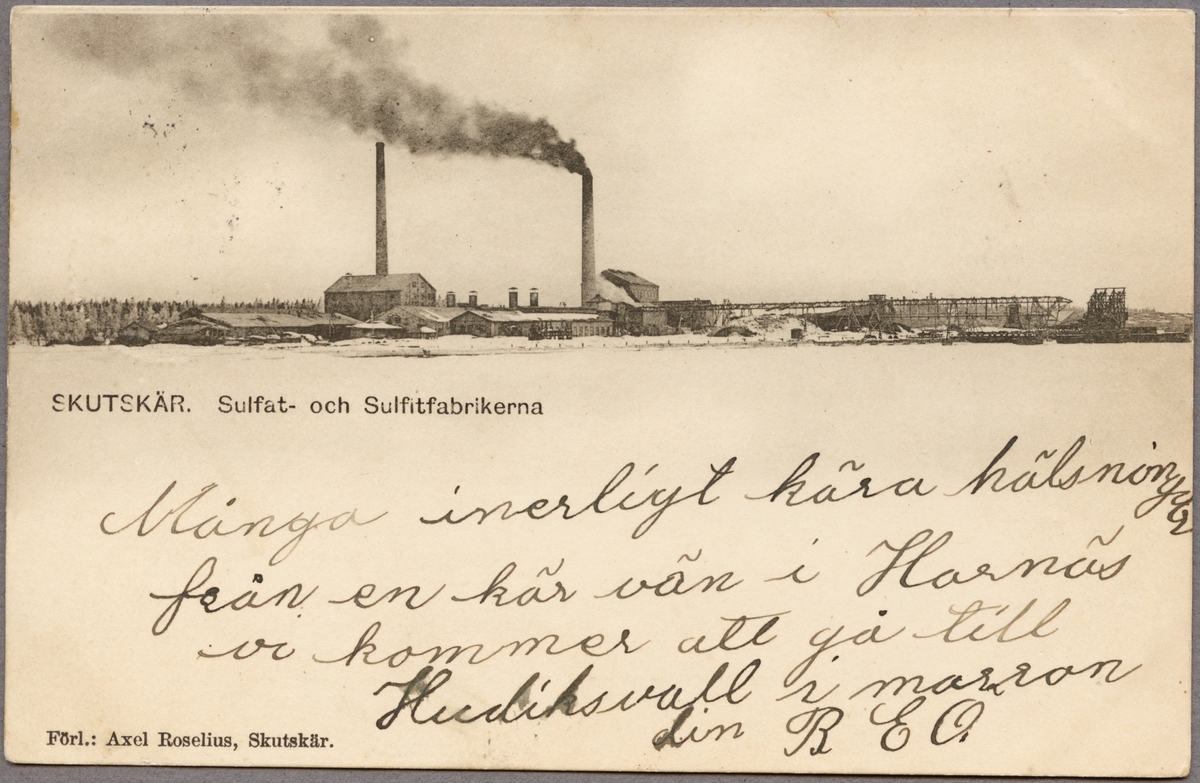 SKUTSKÄR. Sulfat- och Sulfitfabrikerna
Många inerligt kära hälsningar
från en kär vän i Harnäs
vi kommer att gå till
Hudiksvall i morron
din B E O.
Förl.: Axel Roselius, Skutskär.